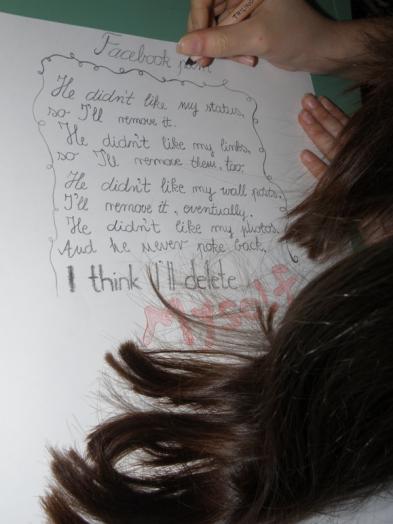 Facebook
He didn't like my status,
so I'll remove it.
He didn't like my links,
so I'll remove them, too.
He didn't like my wall posts.
I'll remove it, eventually.
He didn't like my photos.
And he never poke back.
I think I'll delete
Myself